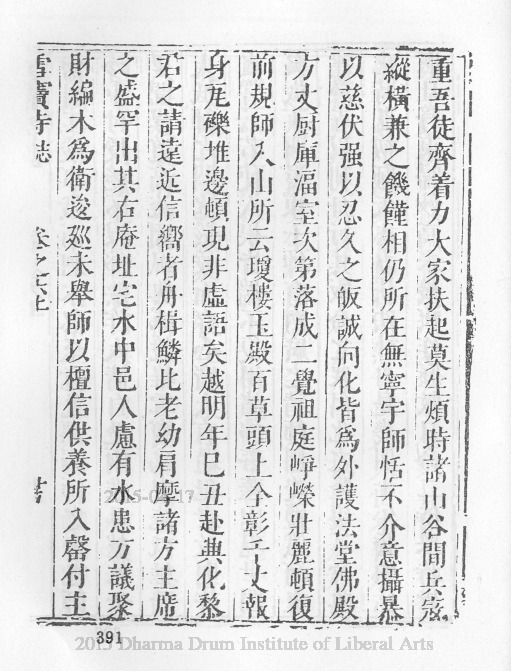 重吾徒齊着力大家扶起莫生煩時諸山谷間兵寇
縱橫兼之饑饉相仍所在無寧宇師恬不介意攝暴
以慈伏强以忍久之皈誠向化皆爲外護法堂佛殿
方丈厨庫湢室次第落成二覺祖庭崢嶸壯麗頓復
前規師入山所云瓊樓玉殿百草頭上全彰千丈報
身瓦礫堆邊頓現非虛語矣越明年巳丑赴典化黎
君之請遠近信嚮者舟楫鱗比老幼肩摩諸方主席
之盛罕出其右庵址宅水中邑人慮有水患方議聚
財編木爲衛逡廵未舉師以檀信供養所入罄付主
雪竇寺誌 卷之六上
391
2015 Dharma Drum Institute of Liberal Arts